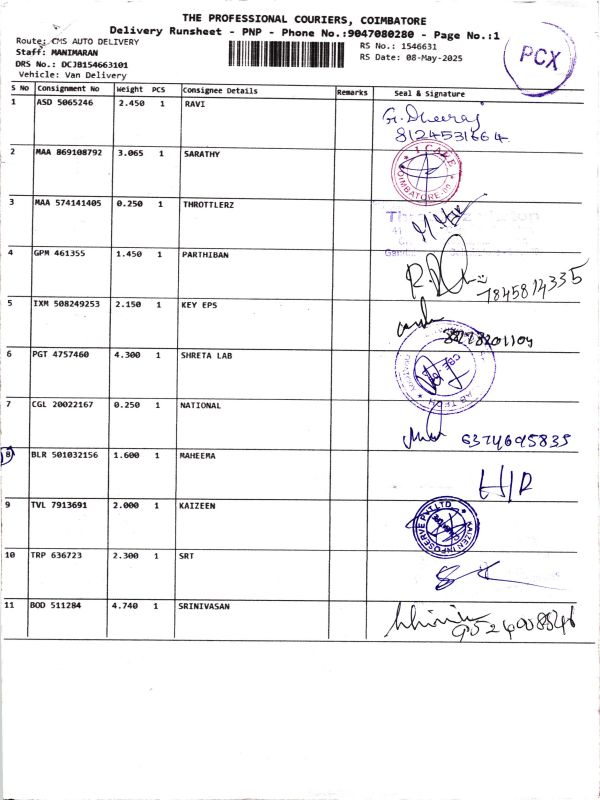 THE PROFESSIONAL COURIERS, COIMBATORE
Delivery Runsheet - PNP - Phone No.:9047080280 - Page No.:1
Route: CMS AUTO DELIVERY
Staff: MANIMARAN
DRS No.: DCJB154663101
Vehicle: Van Delivery
RS No.: 1546631
RS Date: 08-May-2025
PCX
S No Consignment No Weight PCS Consignee Details Remarks Seal & Signature
1 ASD 5065246 2.450 1 RAVI
G. Dheeraj
8124531664
2 MAA 869108792 3.065 1 SARATHY
I CARE
COIMBATORE
3 MAA 574141405 0.250 1 THROTTLERZ
4 GPM 461355 1.450 1 PARTHIBAN
7845814335
5 IXM 508249253 2.150 1 KEY EPS
6 PGT 4757460 4.300 1 SHRETA LAB
LAB TECH
CBE
7 CGL 20022167 0.250 1 NATIONAL
6374695835
8 BLR 501032156 1.600 1 MAHEEMA
H/R
9 TVL 7913691 2.000 1 KAIZEEN
KAIZEN INFOSERVE PVT LTD
10 TRP 636723 2.300 1 SRT
11 BOD 511284 4.740 1 SRINIVASAN